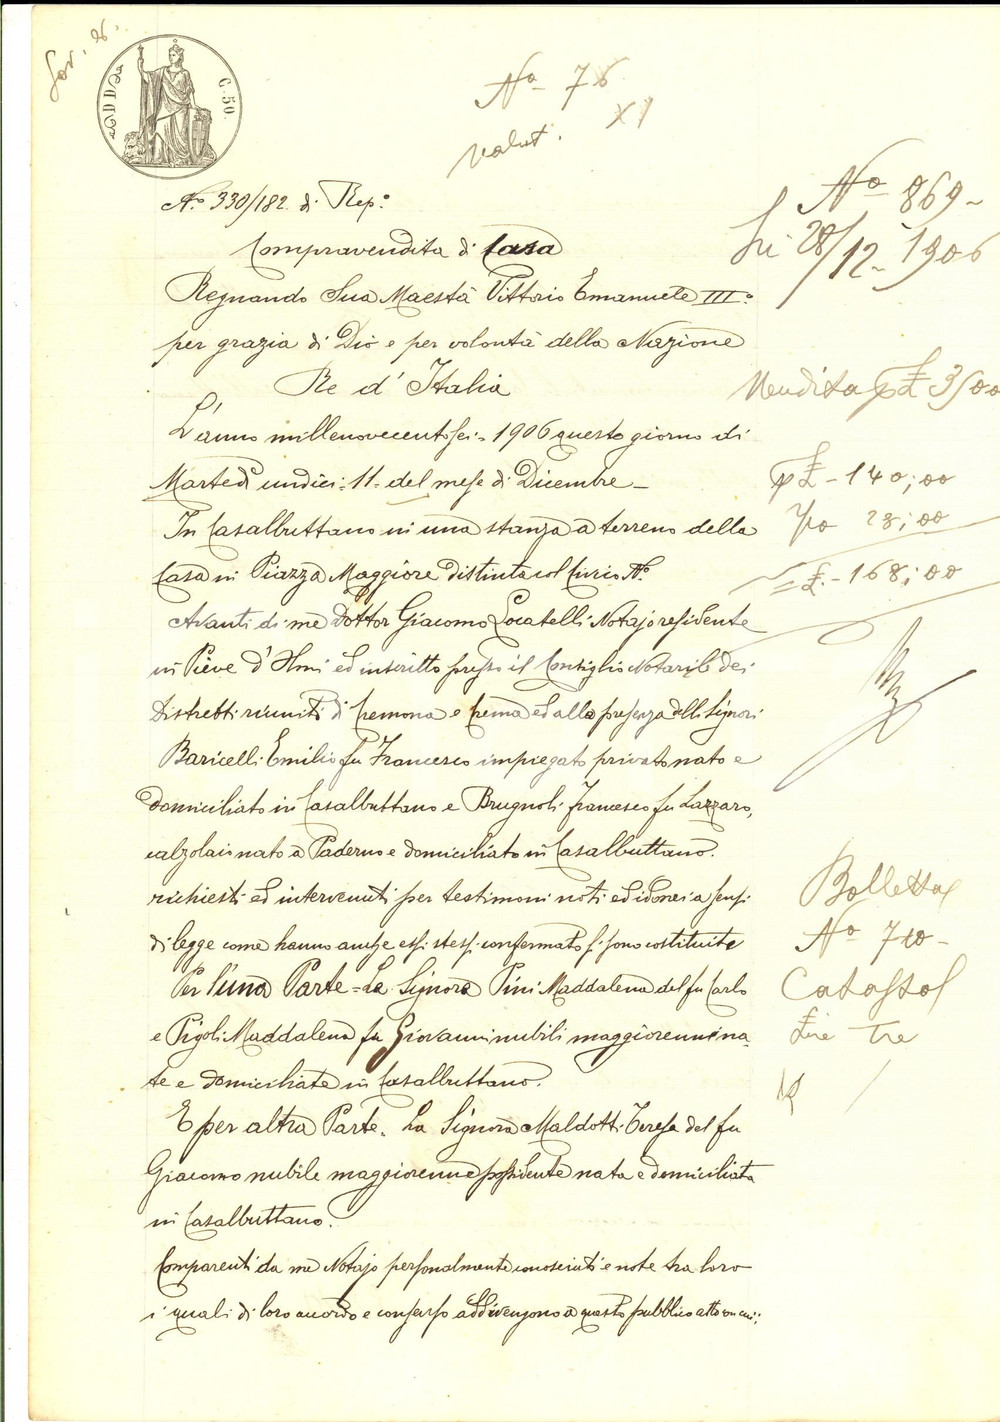 C. 50.
Nº 76
XI
valut.
Nº 330/182 di Repº
Nº 869
li 28/12 1906
Compravendita di Casa
Regnando Sua Maestà Vittorio Emanuele IIIº
per grazia di Dio e per volontà della Nazione
Re d'Italia
Vendita p £ 3500
L'anno millenovecentosei = 1906 questo giorno di
Martedì undici = 11 = del mese di Dicembre
p £ - 140,00
28,00
£ - 168,00
In Casalbuttano in una stanza a terreno della
Casa in Piazza Maggiore distinta col Civico Nº
Avanti di me Dottor Giacomo Locatelli Notajo residente
in Pieve d'Olmi ed inscritto presso il Consiglio Notarile dei
Distretti riuniti di Cremona e Crema ed alla presenza delli Signori
Baricelli Emilio fu Francesco impiegato privato nato e
domiciliato in Casalbuttano e Brugnoli Francesco fu Lazzaro,
calzolaio nato a Paderno e domiciliato in Casalbuttano.
richiesti ed intervenuti per testimoni noti ed idonei a sensi
di legge come hanno anche essi stessi confermato si sono costituite
Bolletta
Nº 710
Catasto
Lire tre
Per l'una Parte = La Signora Pini Maddalena del fu Carlo
e Pigoli Maddalena fu Giovanni nubili maggiorenni na-
te e domiciliate in Casalbuttano.
E per altra Parte. La Signora Maldotti Teresa del fu
Giacomo nubile maggiorenne possidente nata e domiciliata
in Casalbuttano.
Comparenti da me Notajo personalmente conosciuti e note tra loro
i quali di loro accordo e consenso addivengono a questo pubblico atto con cui: